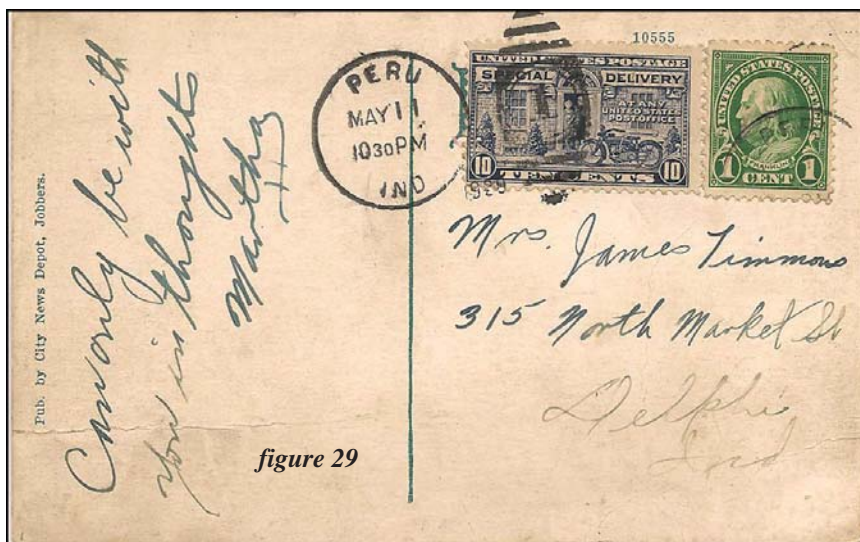 Pub. by City News Depot, Jobbers.
Can only be with
you in thoughts
Martha
figure 29
PERU
MAY 11
1030 PM
IND
10555
UNITED STATES POSTAGE
SPECIAL DELIVERY
AT ANY
UNITED STATES
POST OFFICE
10 TEN CENTS 10
UNITED STATES POSTAGE
FRANKLIN
1 CENT 1
Mrs. James Timmons
315 North Market St
Delphi
Ind